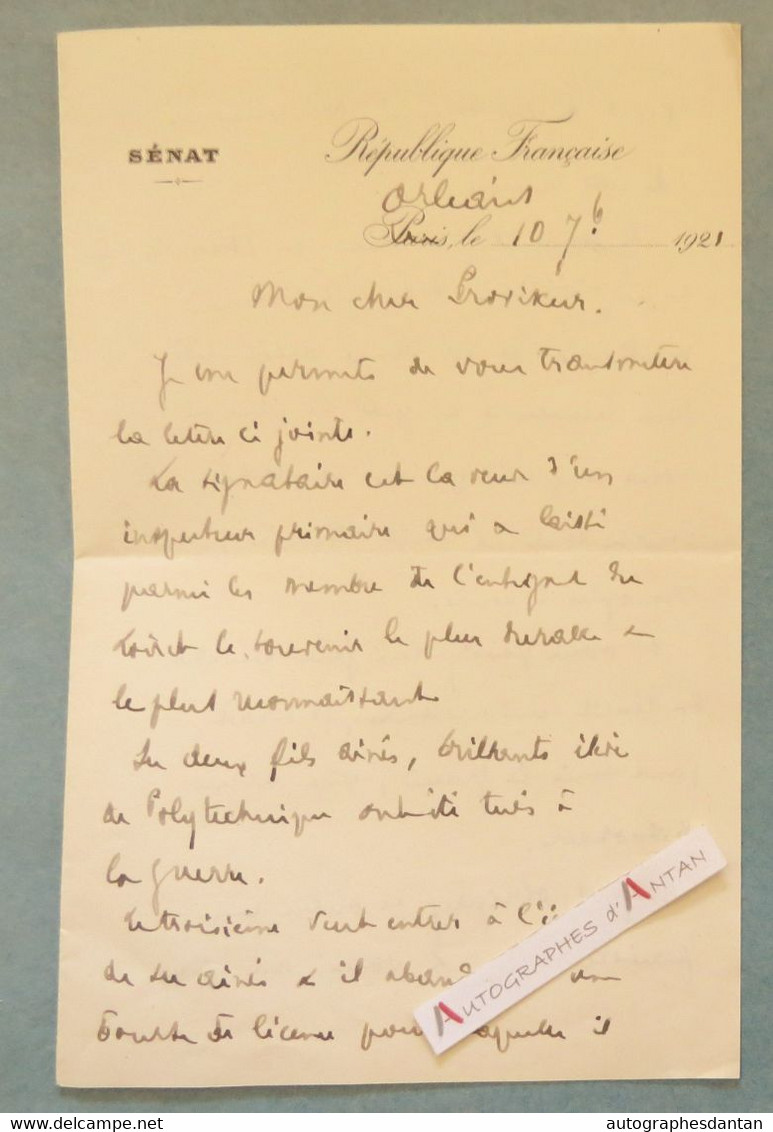 SÉNAT
République Française
Orléans
Paris, le 10 7b 1921
Mon cher Proviseur.
Je me permets de vous transmettre
la lettre ci jointe.
La signataire est la veuve d'un
inspecteur primaire qui a laissé
parmi les membre de l'enseignt du
Loiret le souvenir le plus durable &
le plus reconnaissant
Ses deux fils ainés, brillants élève
de Polytechnique ont été tués à
la guerre.
le troisième veut entrer à l'
de ses ainés & il
bourse de licence pour laquelle il
AUTOGRAPHES d'ANTAN
delcampe.net
autographesdantan